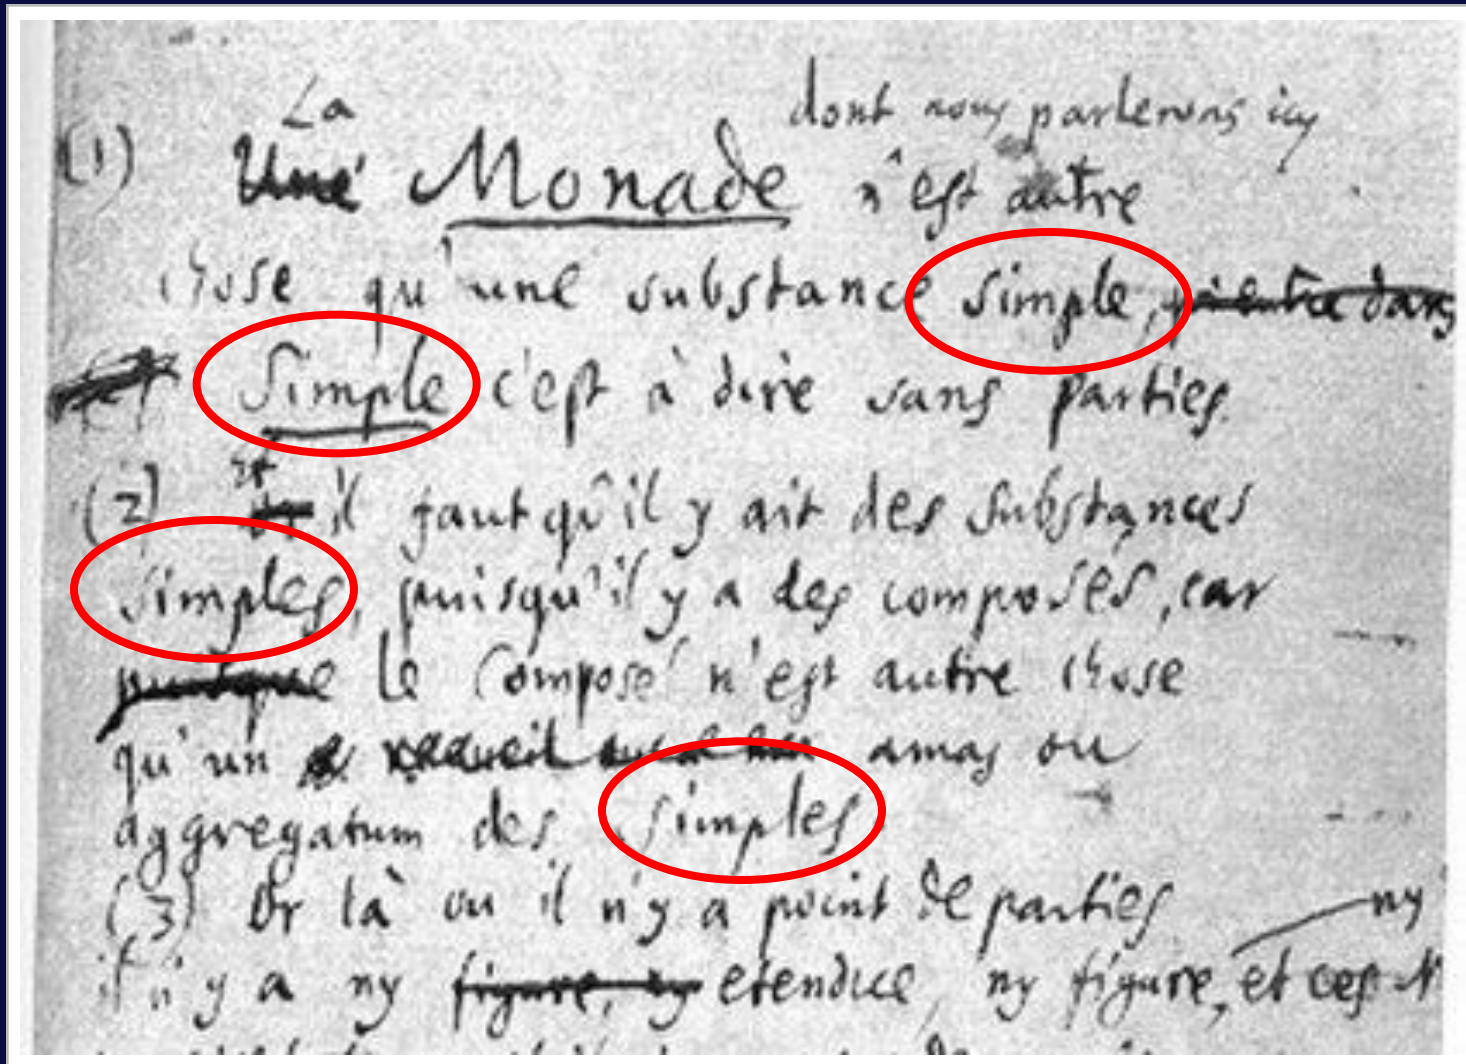 La dont nous parlerons icy
(1) Une Monade n'est autre
chose qu'une substance simple, qui entre dans
Simple c'est à dire sans parties.
(2) et il faut qu'il y ait des substances
simples, puisqu'il y a des composés, car
puisque le Composé n'est autre chose
qu'un recueil amas ou
aggregatum des simples
(3) Or là ou il n'y a point de parties ny
il n'y a ny figure, ny etendue, ny figure, et